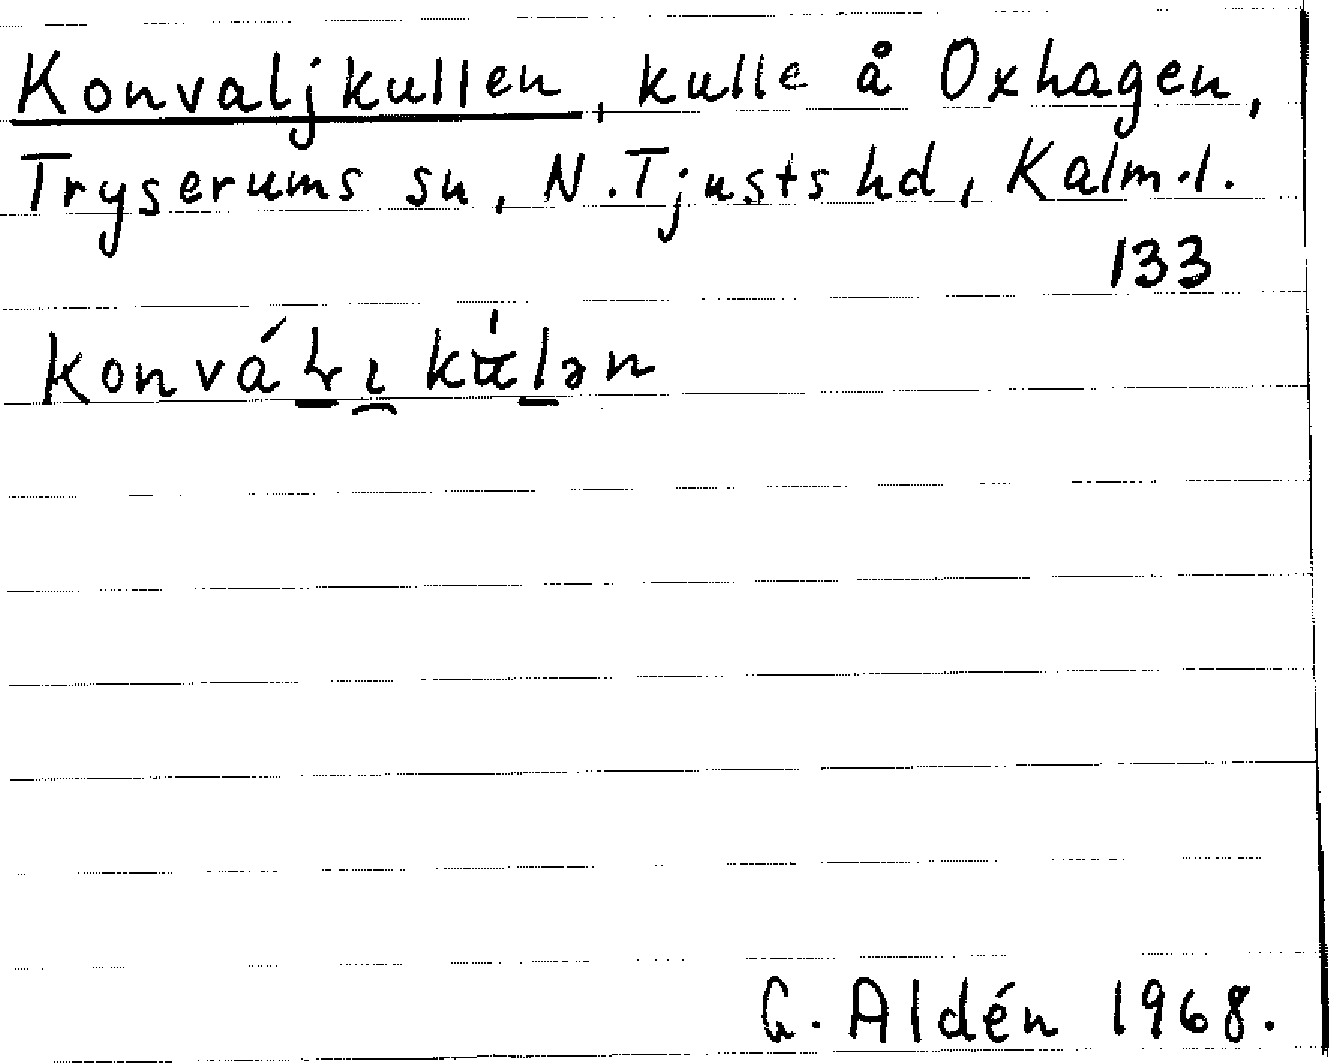 Konvaljkullen, kulle å Oxhagen,
Tryserums sn, N. Tjusts hd, Kalm.l.
133
G. Aldén 1968.